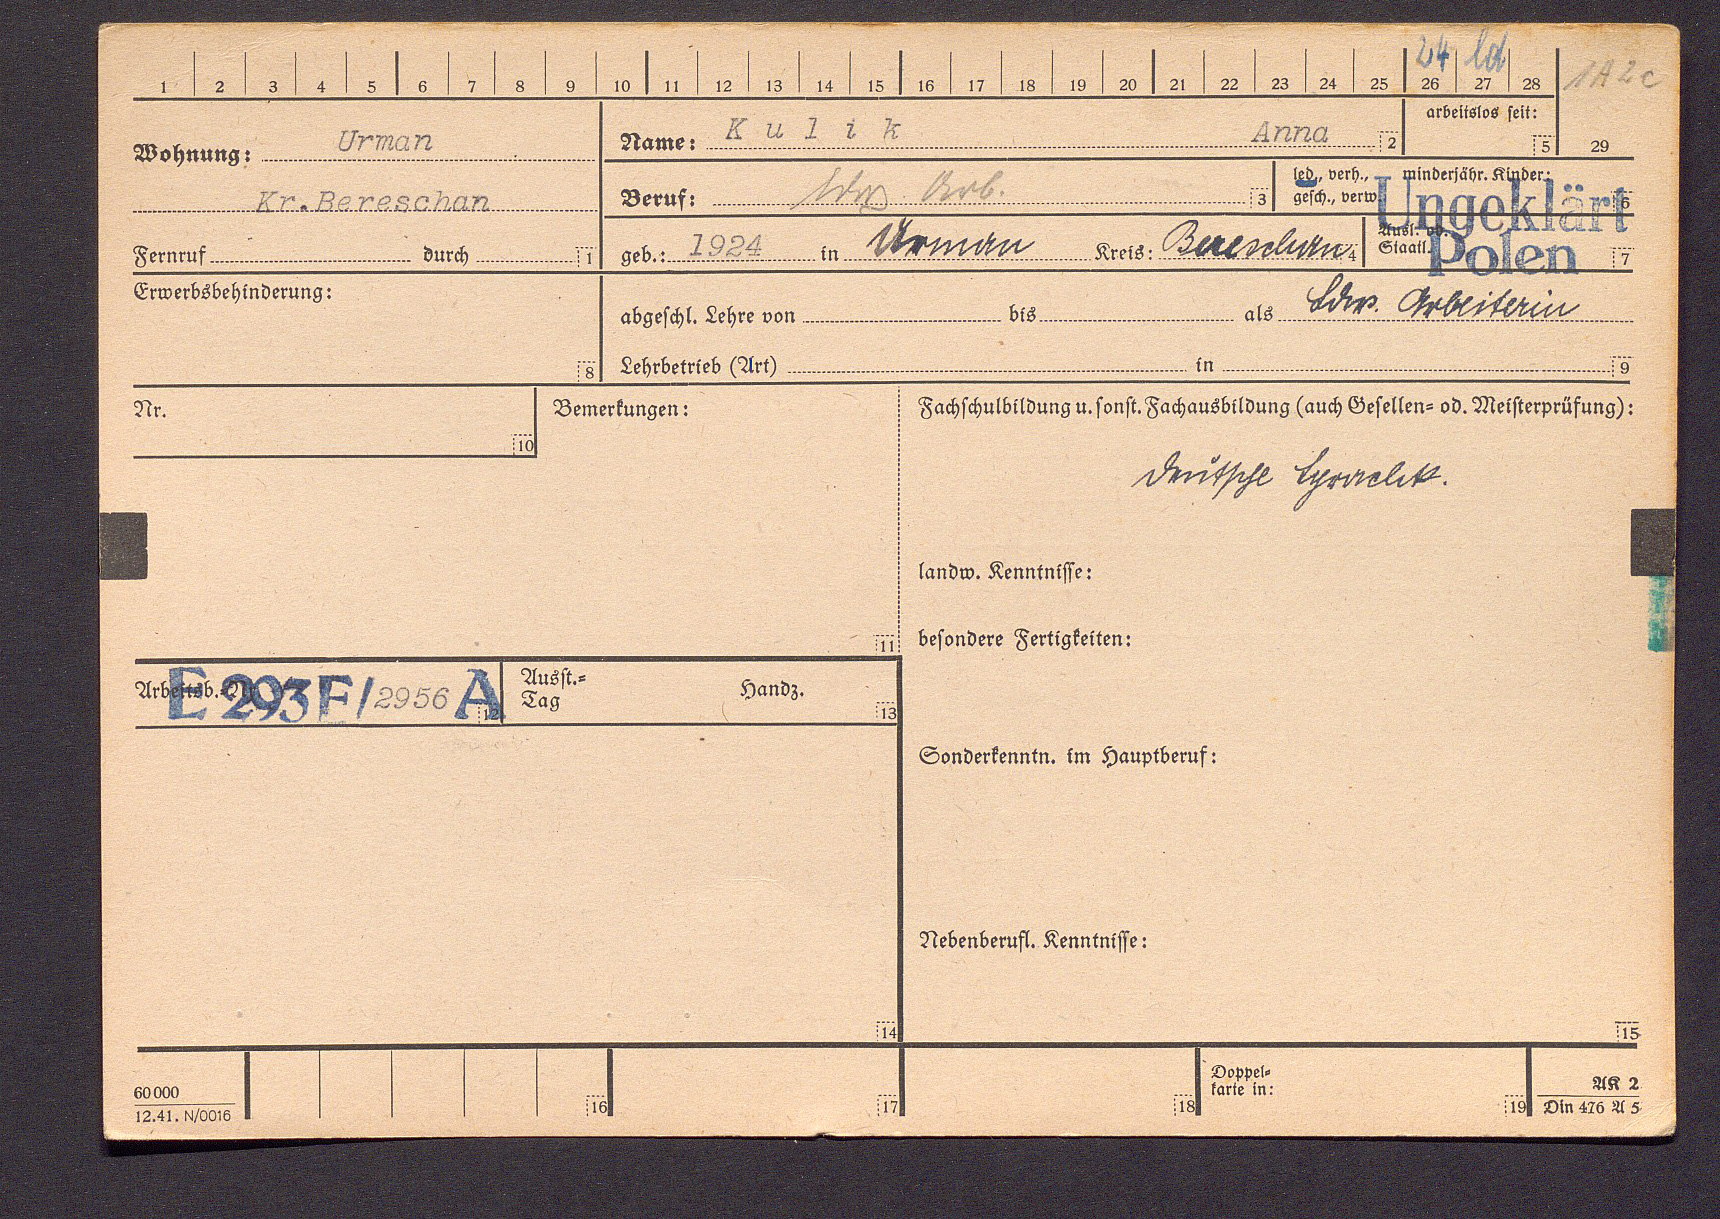 24 ld
1A2c
1 2 3 4 5 6 7 8 9 10 11 12 13 14 15 16 17 18 19 20 21 22 23 24 25 26 27 28
arbeitslos seit:
5 29
Wohnung: Urman
Kr.Bereschan
Fernruf durch 1
Name: Kulik Anna 2
Beruf: ldw Arb. 3
led., verh., gesch., verw.
minderjähr. Kinder: 6
Ungeklärt
geb.: 1924 in Urman Kreis: Bereschan 4
Ausl. od. Staatl. 7
Polen
Erwerbsbehinderung:
8
abgeschl. Lehre von bis als Ldw. Arbeiterin
Lehrbetrieb (Art) in 9
Nr.
10
Bemerkungen:
11
Fachschulbildung u. sonst. Fachausbildung (auch Gesellen= od. Meisterprüfung):
deutsche
landw. Kenntnisse:
besondere Fertigkeiten:
Arbeitsb.-Nr. E 293 F/2956 A 12
Ausst.= Tag Handz. 13
Sonderkenntn. im Hauptberuf:
Nebenberufl. Kenntnisse:
14 15
60000
12.41. N/0016
16 17 18
Doppel=
karte in:
19
AK 2
Din 476 A 5